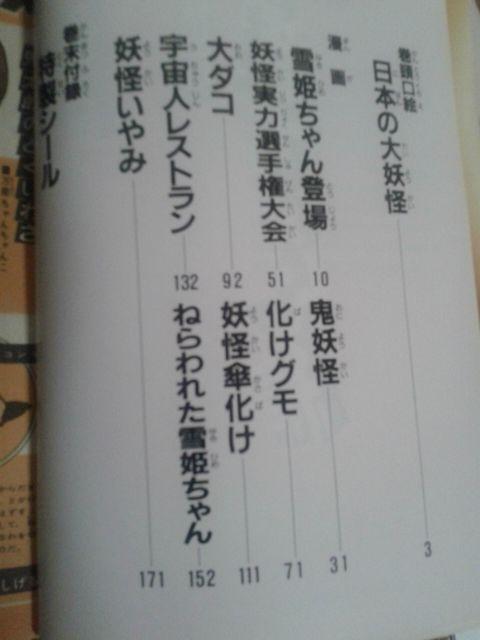 巻頭口絵
日本の大妖怪
3
漫画
雪姫ちゃん登場
10
鬼妖怪
31
妖怪実力選手権大会
51
化けグモ
71
大ダコ
92
妖怪傘化け
111
宇宙人レストラン
132
ねらわれた雪姫ちゃん
152
妖怪いやみ
171
巻末付録
特製シール